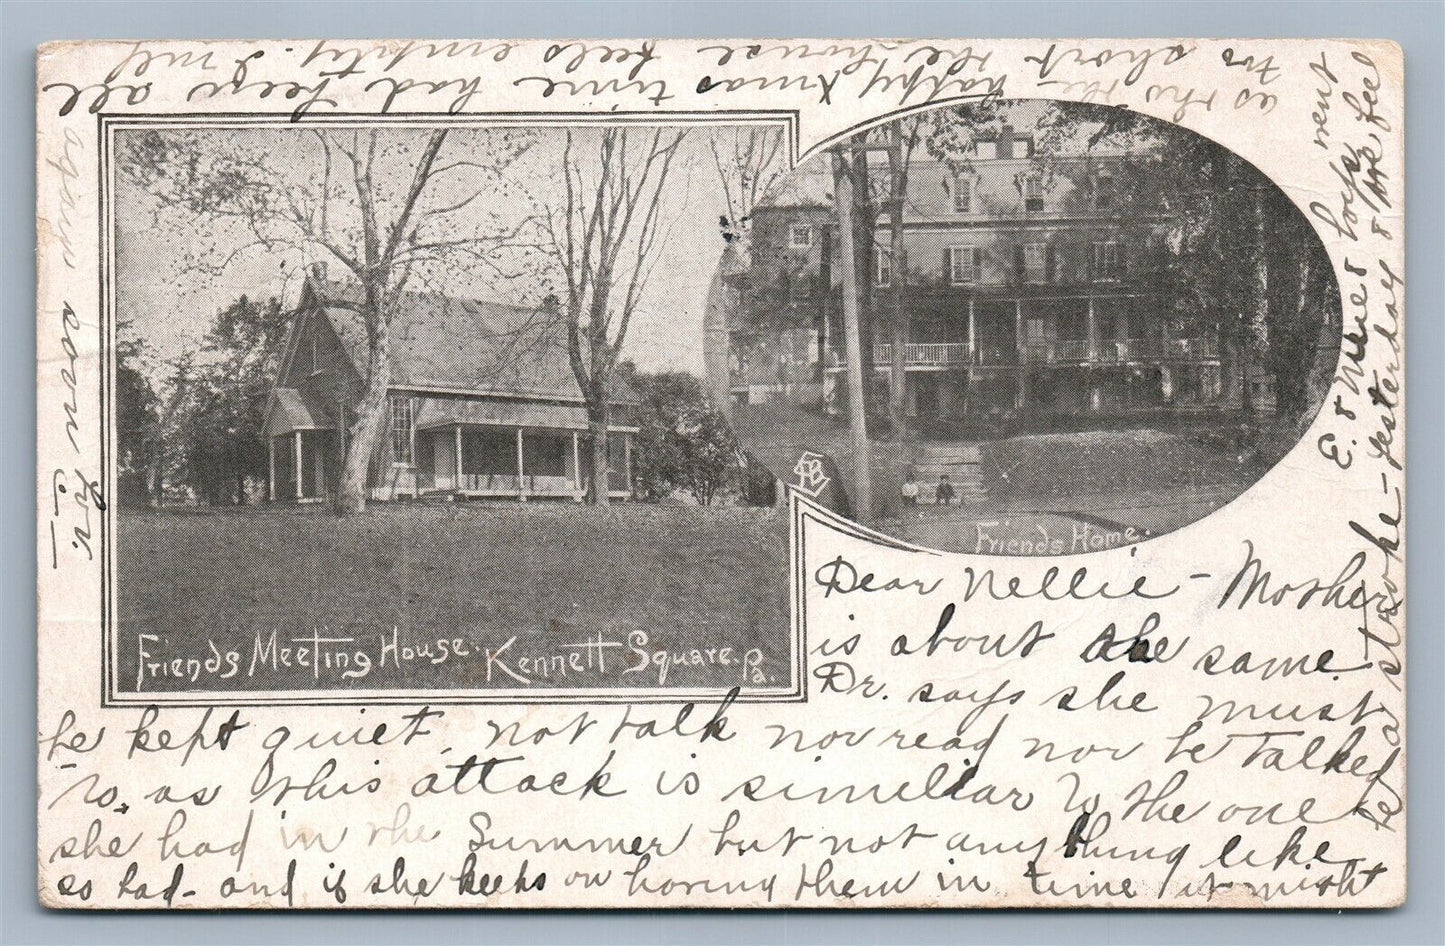 Friends Meeting House. Kennett Square. Pa.
Friends Home.
Dear Nellie - Mother
is about the same.
Dr. says she must
be kept quiet, not talk nor read nor be talked
to, as this attack is simeliar to the one
she had in the Summer but not anything like
so bad - and if she keeps on having them in time it might
be a stroke - yesterday & we feel
E. & & boys went
as tho the happy Xmas time had been all
too short the house feels empty.
again soon